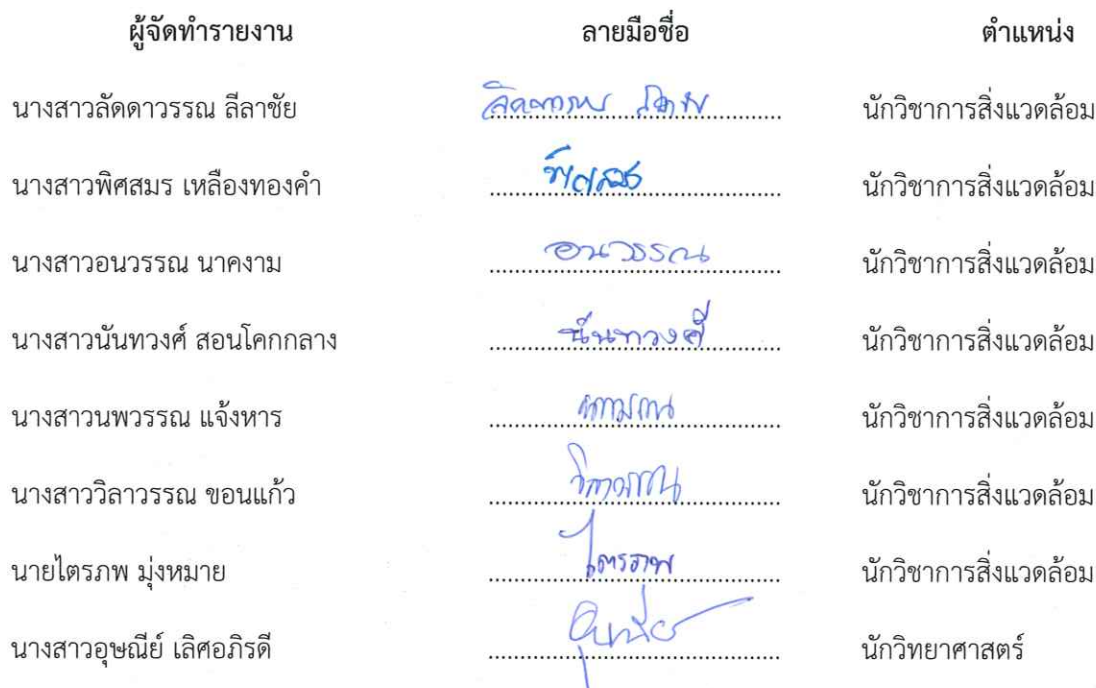 ผู้จัดทำรายงาน ลายมือชื่อ ตำแหน่ง
นางสาวลัดดาวรรณ ลีลาชัย นักวิชาการสิ่งแวดล้อม
นางสาวพิศสมร เหลืองทองคำ พิศสมร นักวิชาการสิ่งแวดล้อม
นางสาวอนวรรณ นาคงาม อนวรรณ นักวิชาการสิ่งแวดล้อม
นางสาวนันทวงศ์ สอนโคกกลาง นันทวงศ์ นักวิชาการสิ่งแวดล้อม
นางสาวนพวรรณ แจ้งหาร นักวิชาการสิ่งแวดล้อม
นางสาววิลาวรรณ ขอนแก้ว วิลาวรรณ นักวิชาการสิ่งแวดล้อม
นายไตรภพ มุ่งหมาย ไตรภพ นักวิชาการสิ่งแวดล้อม
นางสาวอุษณีย์ เลิศอภิรดี อุษณีย์ นักวิทยาศาสตร์